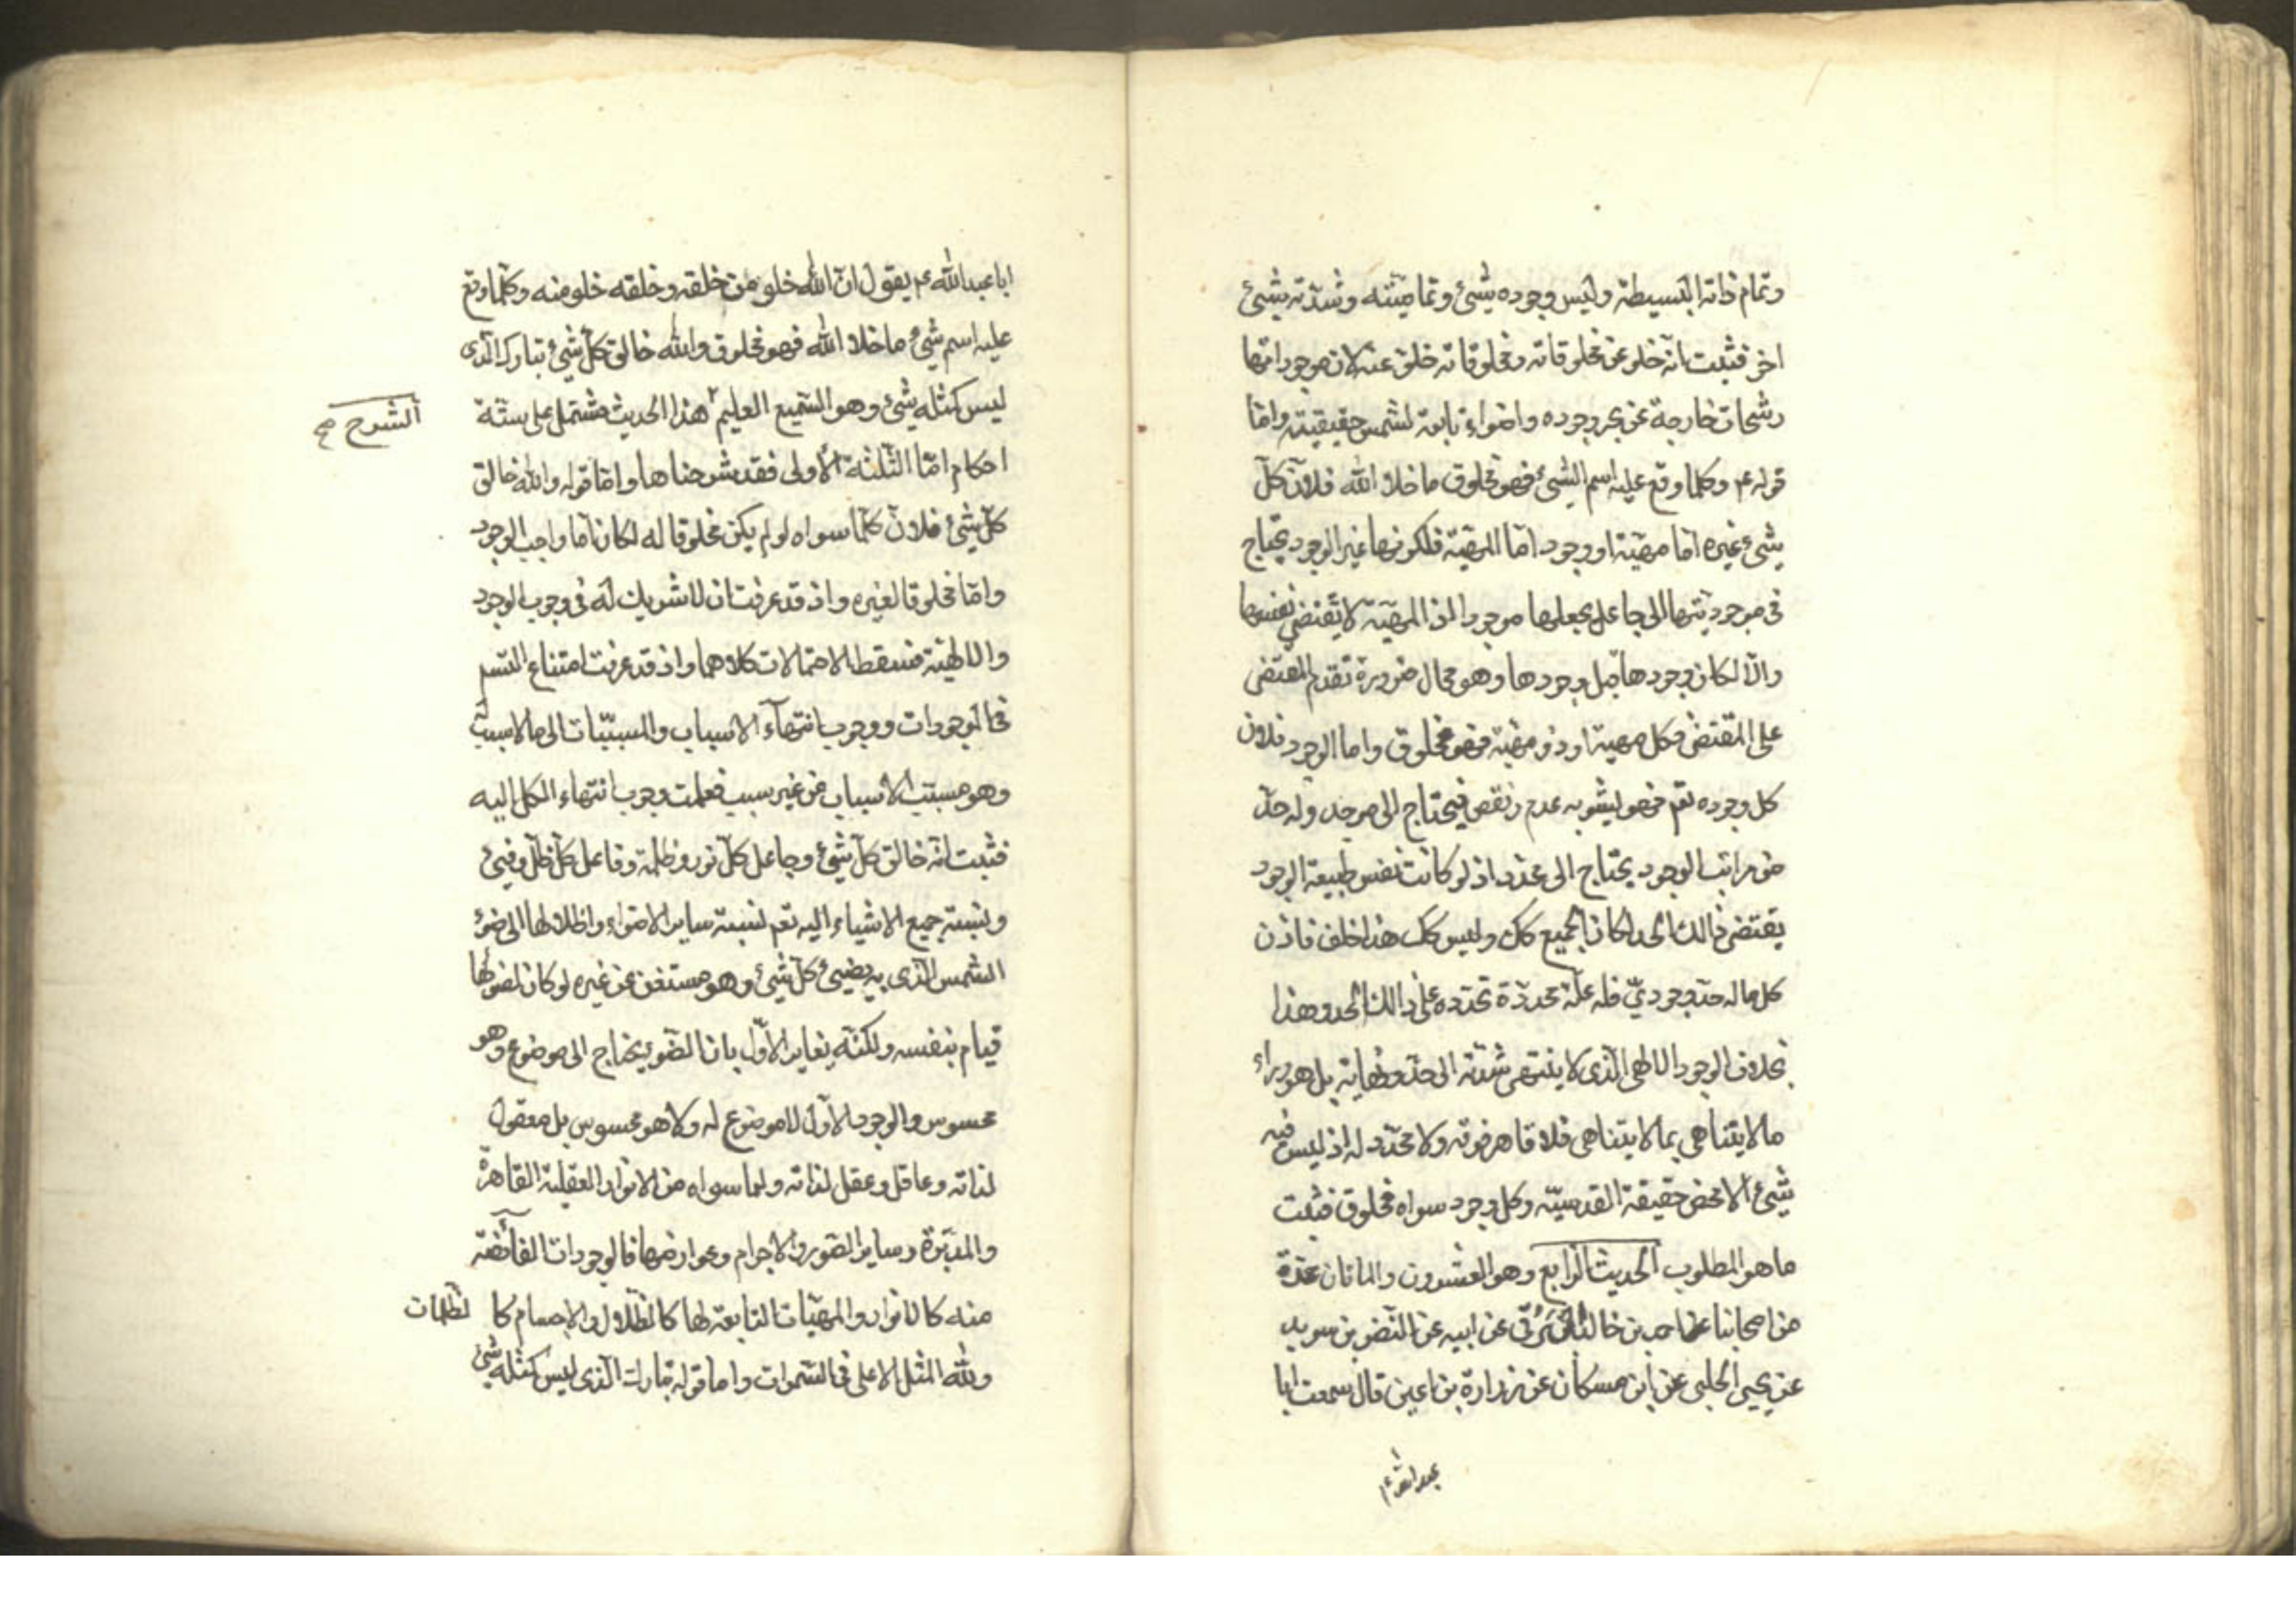 وتمام ذاته البسيطة وليس وجوده بشئ وتماميته وشدته بشئ
اخر فثبت انه خلو عن مخلوقاته ومخلوقاته خلو عنه لان موجوداتها
رشحات خارجة عن بحر وجوده واضواء تابعة لشمس حقيقيته واما
قوله ع وكلما وقع عليه اسم الشئ فهو مخلوق ما خلا الله فلان كل
شئ غيره اما مهية او وجود اما المهية فلكونها غير الوجود يحتاج
فى موجوديتها الى جاعل يجعلها موجودا اذ المهية لا تقتضى نفسها
والا لكان وجودها قبل وجودها وهو محال ضرورة تقدم المقتضى
على المقتضى فكل مهية او ذو مهية فهو مخلوق واما الوجود فلان
كل وجوده تعم فهو ليشوبه عدم ونقص فيحتاج الى موجد وله حد
من مراتب الوجود يحتاج الى محدد اذ لو كانت نفس طبيعة الوجود
يقتضى ذالك الحد لكان الجميع كك وليس كك هذا خلف فاذن
كل ماله حد وجودى فله علة محددة تحدده على ذالك الحد وهذا
بخلاف الوجود الالهى الذى لا ينتهى شدته الى حد ونهاية بل هو وراء
ما لا يتناهى بما لا يتناهى فلا قاهر فوقه ولا محدد له اذ ليس فيه
شئ الا محض حقيقة القدسية وكل وجود سواه مخلوق فثبت
ما هو المطلوب الحديث الرابع وهو العشرون والماتان عدة
من اصحابنا عن احمد بن خالد البرقى عن ابيه عن النضر بن سويد
عن يحيى الحلبى عن ابن مسكان عن زرارة بن اعين قال سمعت ابا
عبد الله ع
ابا عبد الله ع يقول ان الله خلو من خلقه وخلقه خلو منه وكلما وقع
عليه اسم شئ ما خلا الله فهو مخلوق والله خالق كل شئ تبارك الذى
ليس كمثله شئ وهو السميع العليم هذا الحديث مشتمل على ستة
الشرح صح
احكام اما الثلثة الأولى فقد شرحناها واما قوله والله خالق
كل شئ فلان كلما سواه لو لم يكن مخلوقا له لكان اما واجب الوجود
واما مخلوقا لغيره واذ قد عرفت ان لا شريك له فى وجوب الوجود
والالهية فسقط الاحتمالات كلاهما واذ قد عرفت امتناع التسم
فى الموجودات ووجوب انتهآء الاسباب والمسببات الى ما لا سبب له
وهو مسبب الاسباب من غير سبب فعلمت وجوب انتهاء الكل اليه
فثبت انه خالق كل شئ وجاعل كل نور وظلمة وفاعل كل ظل وفيئ
ونسبة جميع الاشياء اليه تعم نسبة ساير الاضواء واظلالها الى ضوء
الشمس الذى به يضيئ كل شئ وهو مستغن عن غيره لو كان لضوئها
قيام بنفسه ولكنه يغاير الأول بان الضوء يحتاج الى موضوع وهو
محسوس والوجود الاول لا موضوع له ولا هو محسوس بل معقول
لذاته وعاقل وعقل لذاته ولما سواه من الانوار العقلية القاهرة
والمدبرة وساير الصور والاجرام وعوارضها فالوجودات الفائضة
منه كالانوار والمهيات التابعة لها كالظلال والاجسام كا لظلمات
ولله المثل الاعلى فى السموات واما قوله تبارك الذى ليس كمثله شئ